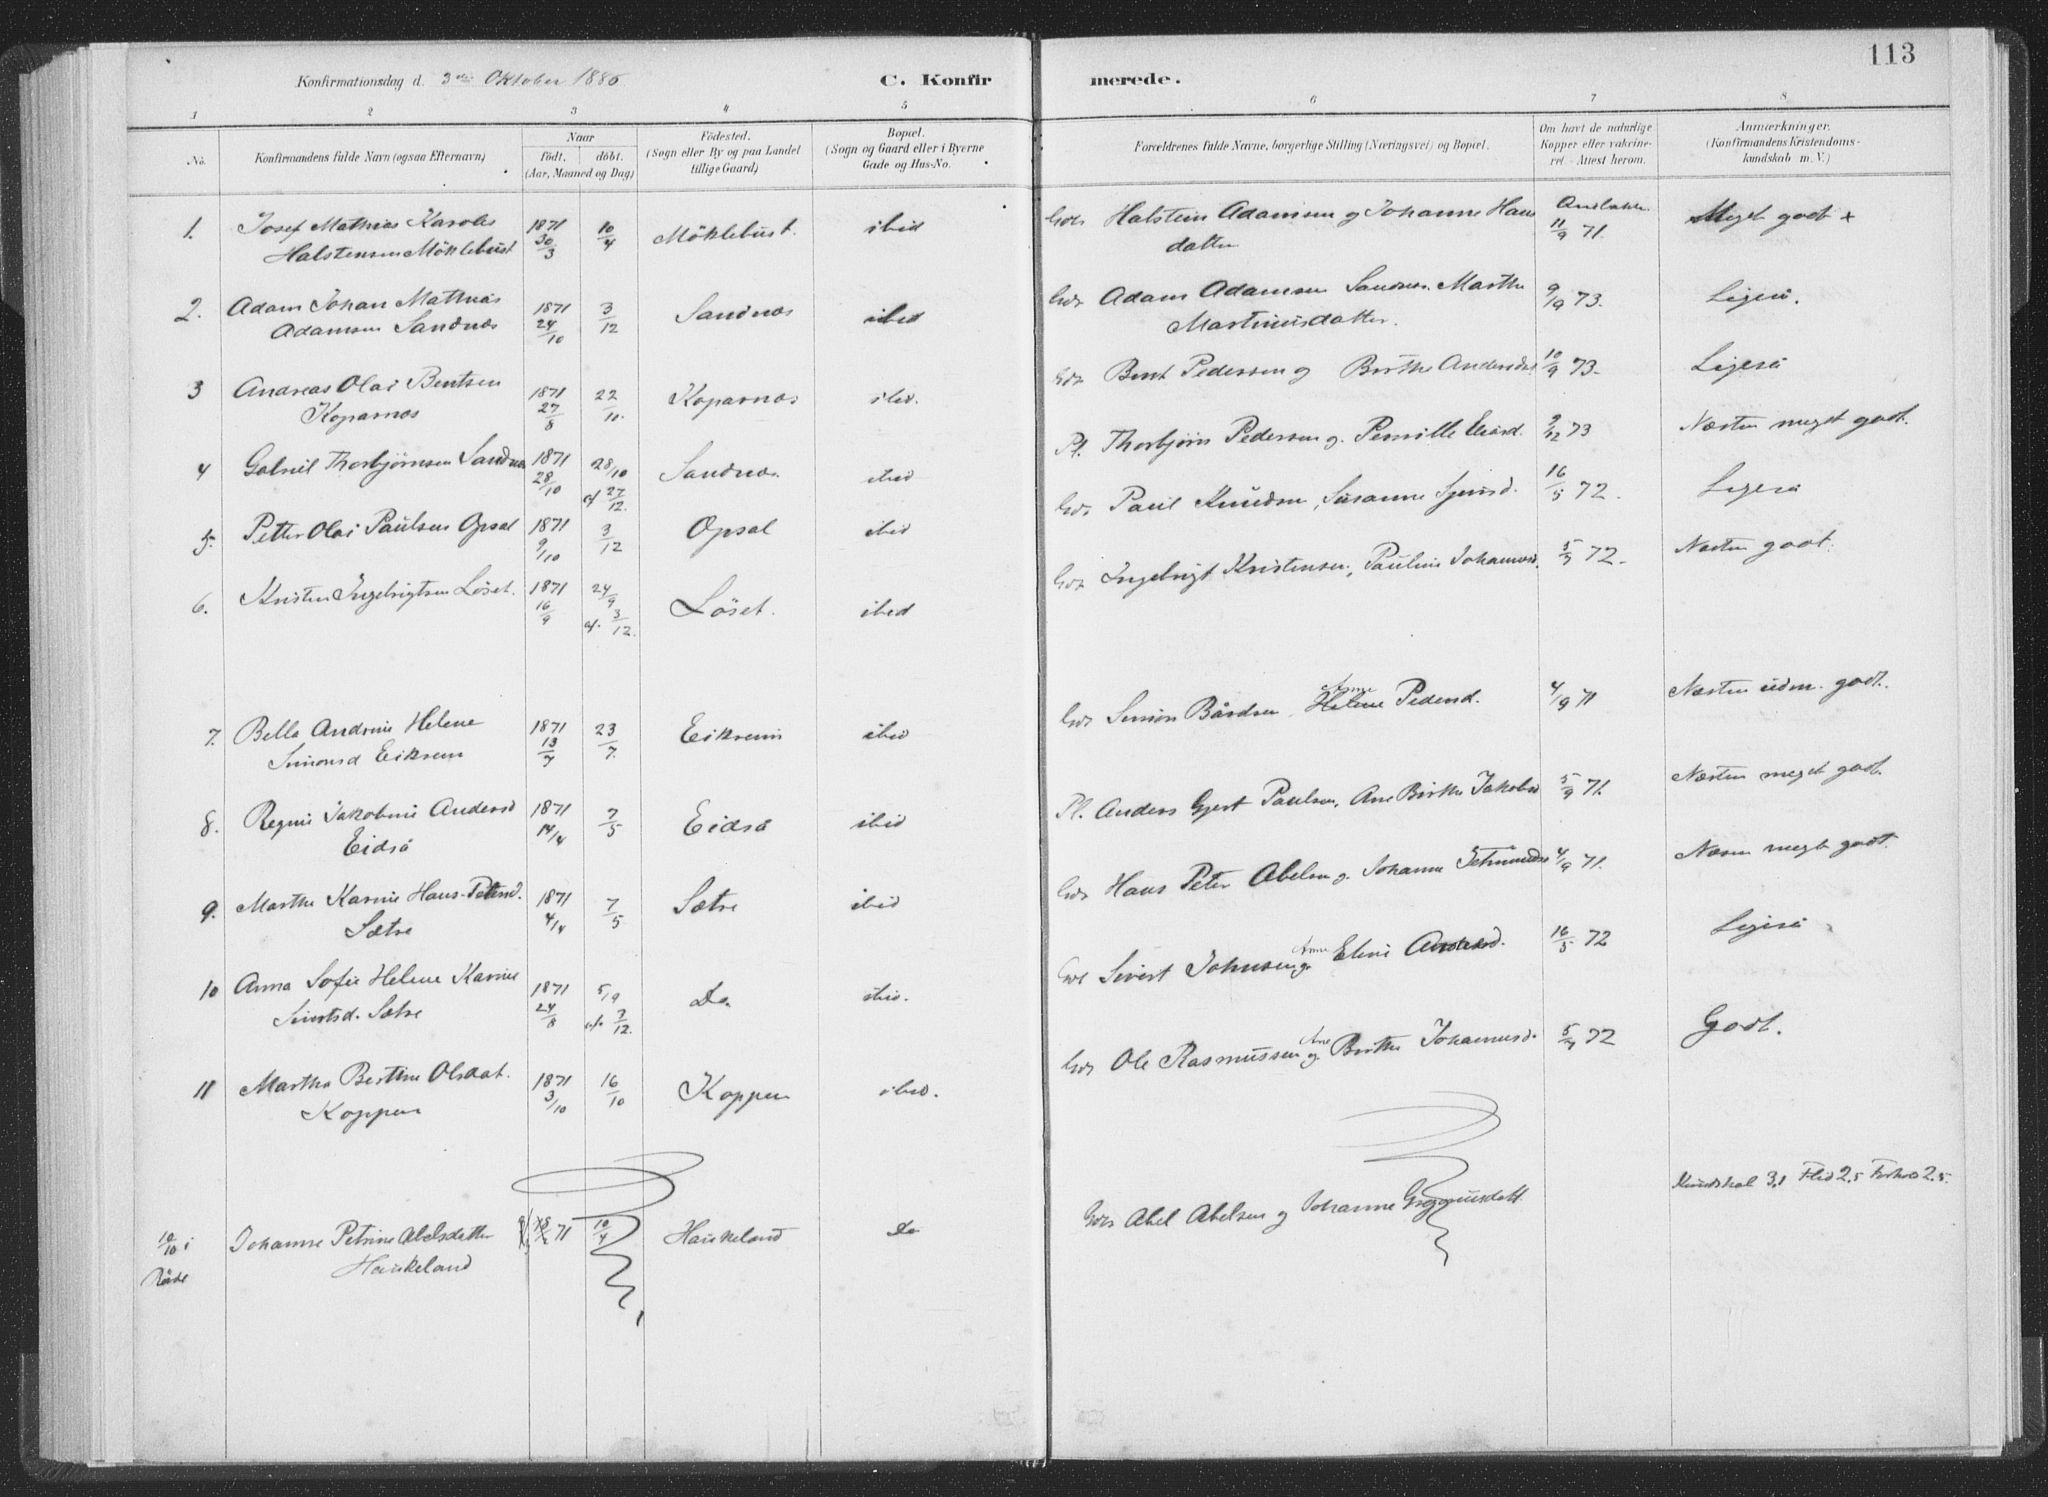 113
Konfirmationsdag d. 3die Oktober 1886
C. Konfirmerede.
1 2 3 4 5 6 7 8
No.
Konfirmandens fulde Navn (ogsaa Efternavn)
Naar
født. døbt.
(Aar, Maaned og Dag)
Födested.
(Sogn eller By og paa Landet
tillige Gaard)
Bopæl.
(Sogn og Gaard eller i Byerne
Gade og Hus-No.
Forældrenes fulde Navne, borgerlige Stilling (Næringsvei) og Bopæl.
Om havt de naturlige
Kopper eller vakcine-
ret. - Attest herom.
Anmærkninger.
(Konfirmandens Kristendoms-
kundskab m. V.)
1. Josef Mathias Karoles 1871 10/4 Möklebust. ibid Halstein Adamsen og Johanne Hans
Halstensen Möklebust 30/3 datter 11/9 71. Meget godt +
2. Adam Johan Mathias 1871 3/12 Sandnæs ibid Adam Adamsen Sandnæs. Marthe 9/9 73. Ligeså.
Adamsen Sandnæs 24/10 Martinusdatter.
3 Andreas Olai Bentsen 1871 22/10. Koparnæs ibid. Bent Pedersen og Birthe Andersdr 10/9 73. Ligeså
Koparnæs 27/8
4 Gabriel Thorbjörnsen Sandnæs 1871 28/10 Sandnæs. ibid Pl. Thorbjörn Pedersen og Pernille Eliasd. 9/12 73 Næsten meget godt.
28/10 cf 27/12.
5. Petter Olai Paulsen Opsal 1871 3/12 Opsal ibid Paul Knudsen, Susanne 16/5 72. Ligeså
9/10
6. Kristen Ingebrigtsen Löset. 1871 24/9 Löset. ibid Ingebrigt Kristensen, Pauline Johannesd. 5/7 72. Næsten godt.
16/9 cf. 3/12.
7. Bella Andrine Helene 1871 23/7. Eiksem ibid Simon Bårdsen, Anne Helene Pedersd. 4/9 71 Næsten udm. godt.
Simonsd Eiksem 13/7
8. Regine Jakobine Andersd 1871 7/5 Eidså ibid Pl. Anders Gjert Paulsen, Ane Birthe Jakobsd 5/9 71. Næsten meget godt.
Eidså 14/4
9. Marthe Karine Hans-Petersd. 1871 7/5 Sætre ibid Hans Peter Abelsen og Johanne 4/9 71. Næsen meget godt.
Sætre 4/4
10 Anna Sofie Helene Karine 1871 5/9 Do. ibid. Sivert Johnsen og Anne Eline Andersd. 16/5 72 Ligeså
Sivertsd. Sætre 24/8 cf. 3/12.
11 Martha Bertine Olsdat. 1871 16/10 Koppen ibid. Ole Rasmussen og Ane Birthe Johannesd. 5/7 72 Godt.
Koppen 3/10
10/10 i Johanne Petrine Abelsdatter 71 10/4 Haukeland Do Abel Abelsen og Johanne Gregoriusdatt. Kundskab 3,1 Flid 2,5 Forhold 2.5.
Haukeland